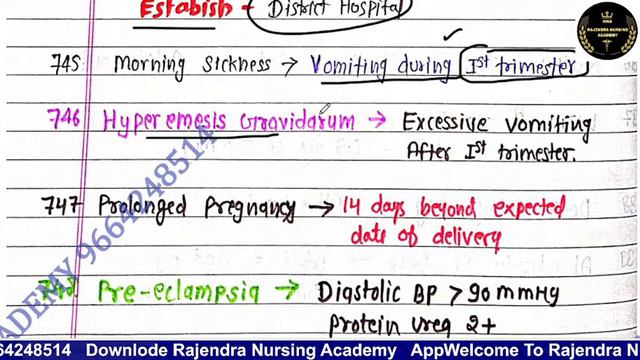 Estabish - District Hospital
RNA
RAJENDRA NURSING
ACADEMY
745 Morning Sickness → Vomiting during Ist trimester
746 Hyperemesis Gravidarum → Excessive vomiting
After Ist trimester.
747 Prolonged Pregnancy → 14 days beyond expected
date of delivery
Pre-eclampsia → Diastolic BP > 90 mmHg
Protein urea 2+
ADEMY 9664248514
64248514 Downlode Rajendra Nursing Academy AppWelcome To Rajendra N